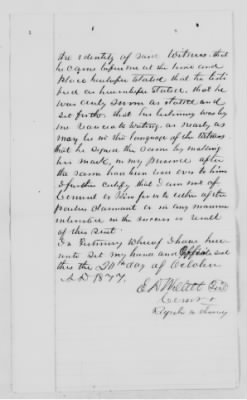 the identity of said Witness that
he came before me at the time and
place heretofore stated that he testi
fied as heretofore stated, that he
was duly sworn as stated and
set forth. that his testimony was by
me reduced to writing, as nearly as
may be in the language of the Witness
that he signed the same by making
his mark, in my presence after
the same had been read over to him
I further certify that I am not of
Counsel or Kin for or to either of the
parties claimant or in any manner
interested in the success or result
of this suit.
In Testimony Whereof I have here
unto set my hand and Official seal
this the 20th day of October
A.D 1877.